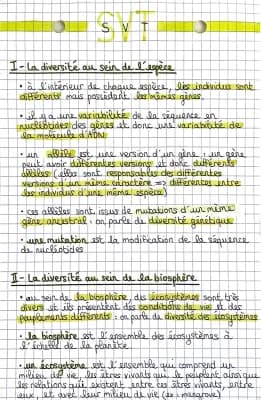 SVT
I - La diversité au sein de l'espèce
• à l'intérieur de chaque espèce, les individus sont
différents mais possèdent les mêmes gènes.
• il y a une variabilité de la séquence en
nucléotides des gènes et donc une variabilité de
la molécule d'ADN
• un allèle est une version d'un gène : un gène
peut avoir différentes versions et donc différents
allèles (elles sont responsables des différentes
versions d'un même caractère => différences entre
les individus d'une même espèce)
• ces allèles sont issus de mutations d'un même
gène ancestral : on parle de diversité génétique
• une mutation est la modification de la séquence
de nucléotides
II - La diversité au sein de la biosphère
• au sein de la biosphère, des écosystèmes sont très
divers et ils présentent des conditions de vie et des
peuplements différents : on parle de diversité des écosystèmes
• la biosphère est l'ensemble des écosystèmes à
l'échelle de la planète
• un écosystème est l'ensemble qui comprend un
milieu de vie, les êtres vivants qui le peuplent ainsi que
les relations qui existent entre ces êtres vivants, entre
eux, et avec leur milieu de vie (ex : mangrove)